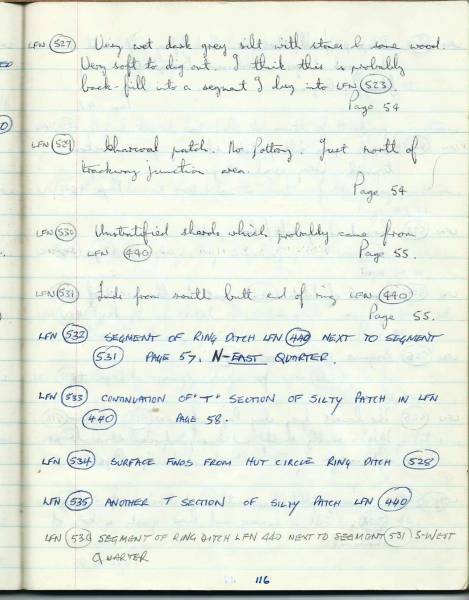 LFN 527 Very wet dark grey silt with stones & some wood.
Very soft to dig out. I think this is probably
back-fill into a segment I dug into LFN 523.
Page 54
LFN 529 Charcoal patch. No Pottery. Just north of
trackway junction area.
Page 54
LFN 530 Unstratified sherds which probably came from
LFN 440 Page 55.
LFN 531 Finds from south butt end of ring LFN 440
Page 55.
LFN 532 SEGMENT OF RING DITCH LFN 440 NEXT TO SEGMENT
531 PAGE 57. N-EAST QUARTER.
LFN 533 CONTINUATION OF "T" SECTION OF SILTY PATCH IN LFN
440 PAGE 58.
LFN 534 SURFACE FINDS FROM HUT CIRCLE RING DITCH 528
LFN 535 ANOTHER T SECTION OF SILTY PATCH LFN 440
LFN SEGMENT OF RING DITCH LFN 440 NEXT TO SEGMENT 531 S-WEST
QUARTER
116